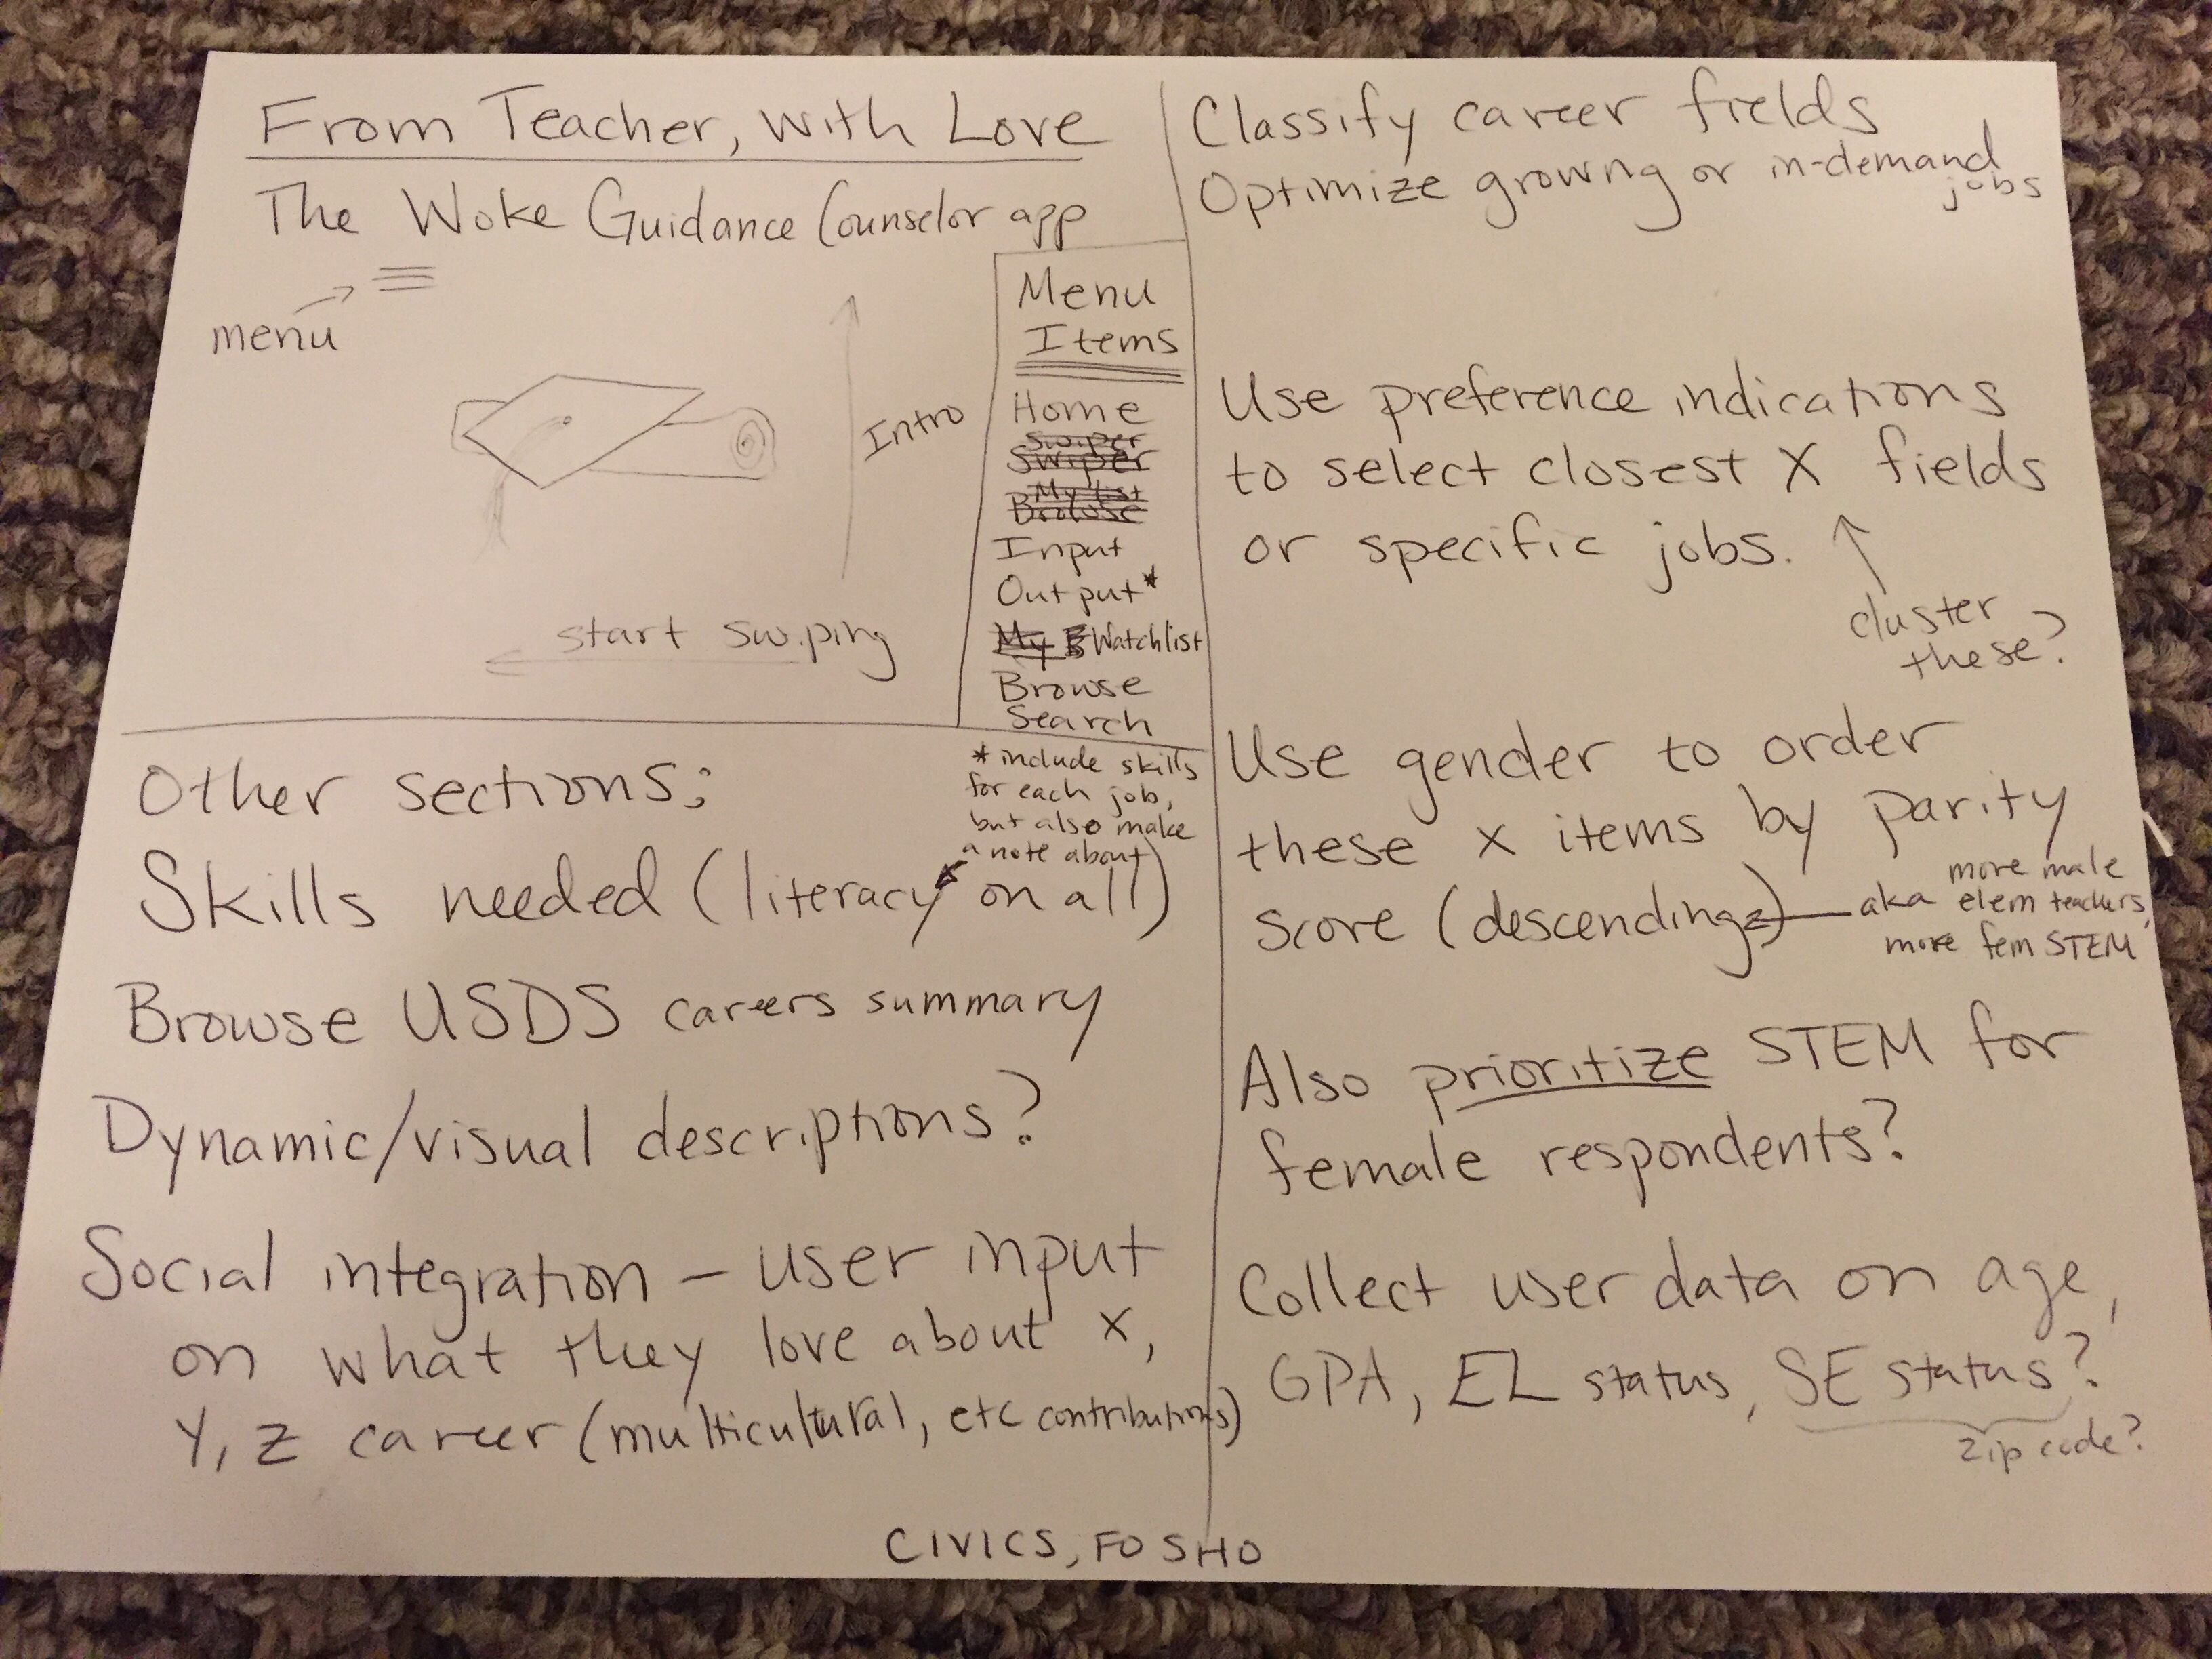 From Teacher, with Love
The Woke Guidance Counselor app
menu
Intro
start swiping
Menu
Items
Home
Swiper
Swiper
My list
Browse
Input
Output*
My Watchlist
Browse
Search
Other sections:
* include skills
for each job,
but also make
a note about
Skills needed (literacy on all)
Browse USDS careers summary
Dynamic/visual descriptions?
Social integration - user input
on what they love about x,
y, z career (multicultural, etc contributions)
Classify career fields
Optimize growng or in-demand
jobs
Use preference indications
to select closest X fields
or specific jobs.
cluster
these?
Use gender to order
these x items by parity
score (descending)
more male
aka elem teachers,
more fem STEM
Also prioritize STEM for
female respondents?
Collect user data on age,
GPA, EL status, SE status?
zip code?
CIVICS, FO SHO